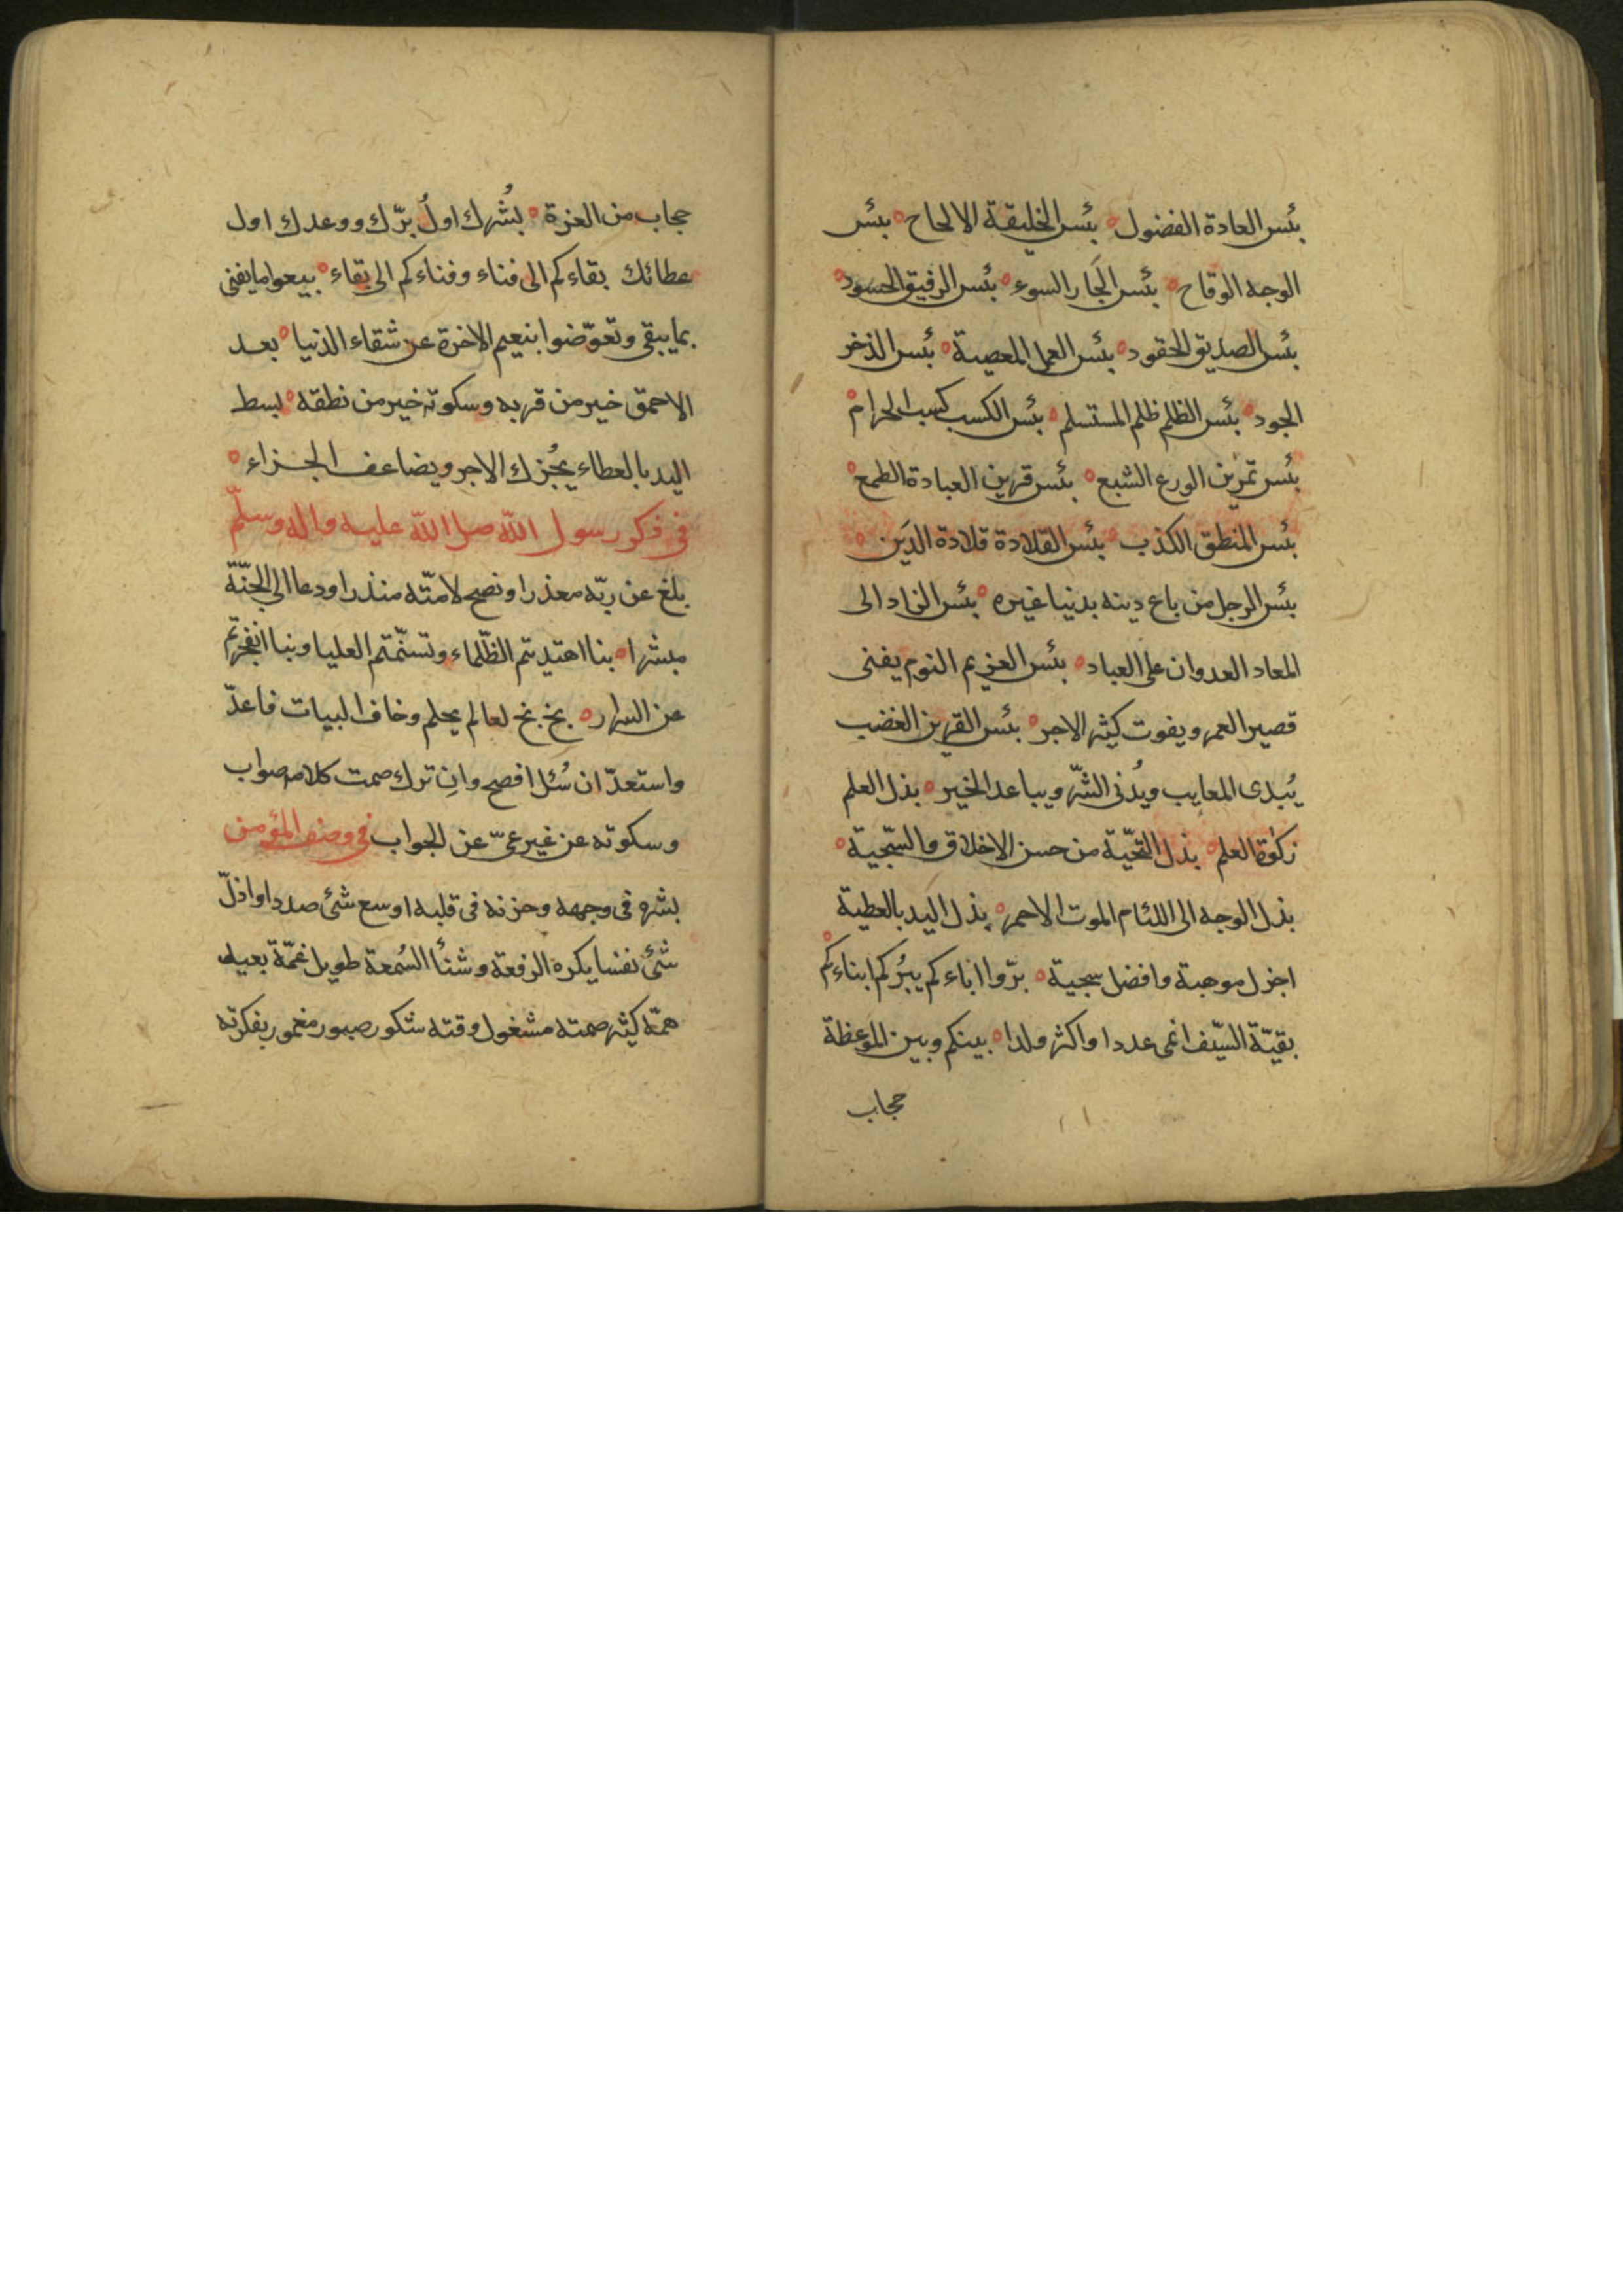 بئس العادة الفضول ه بئس الخليقة الالحاح ه بئس
الوجه الوقاح ه بئس الجَار السوء ه بئس الرفيق الحسود ه
بئس الصديق الحقود ه بئس العمل المعصية ه بئس الذخر
الجود ه بئس الظلم ظلم المستسلم ه بئس الكسب كسب الحرام ه
بئس تمرين الورع الشبع ه بئس قرين العبادة الطمع ه
بئس المنطق الكذب ه بئس القلادة قلادة الدَين ه
بئس الرجل من باع دينه بدنيا غيره ه بئس الزاد الى
المعاد العدوان على العباد ه بئس الغريم النوم يفنى
قصير العمر ويفوت كثير الاجر ه بئس القرين الغضب
يُبدى المعايب ويُدنى الشّر ويباعد الخير ه بذل العلم
زكوة العلم ه بذل التحّية من حسن الاخلاق والسّجية ه
بذل الوجه الى اللئام الموت الاحمر ه بذل اليد بالعطية
اجزل موهبة وافضل سجية ه برّوا اباءكم يبرُكم ابناءكم ه
بقيّة السّيف انمى عددا واكثر ولدا ه بينكم وبين الموعظة
حجاب
حجاب من العزة ه بشُرك اولُ برّك ووعدك اول
عطائك بقاءكم الى فناء وفناءكم الى بقاء ه بيعوا ما يفنى
بما يبقى وتعوّضوا بنعيم الاخرة عن شقاء الدنيا ه بعد
الاحمق خير من قربه وسكوته خير من نطقه ه بسط
اليد بالعطاء يجُزك الاجر ويضاعف الجزاء ه
فى ذكر رسول الله صل الله عليه واله وسلّم
بلغ عن ربّه معذرا ونصح لامتّه منذرا ودعا الى الجنّة
مبشرا ه بنا اهتديتم الظّلماء وتسنّمتم العليا وبنا انفجرتم
عن السرار ه بخ بخ لعالم يحلم وخاف البيات فاعدّ
واستعدّ ان سُئل افصح وانِ ترك صمت كلامه صواب
وسكوته عن غير عىّ عن الجواب فى وصف المؤمن
بشره فى وجهه وحزنه فى قلبه اوسع شئ صدرا واذلّ
شئ نفسا يكره الرفعة وشنأ السُمعة طويل غمّة بعيد
همّه كثير صمته مشغول وقته شكور صبور مغمور بفكرته